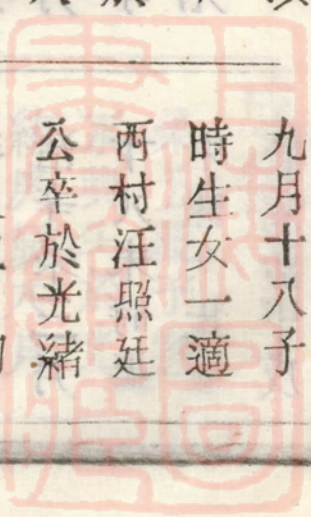 九月十八子
時生女一適
西村汪照廷
公卒於光緒